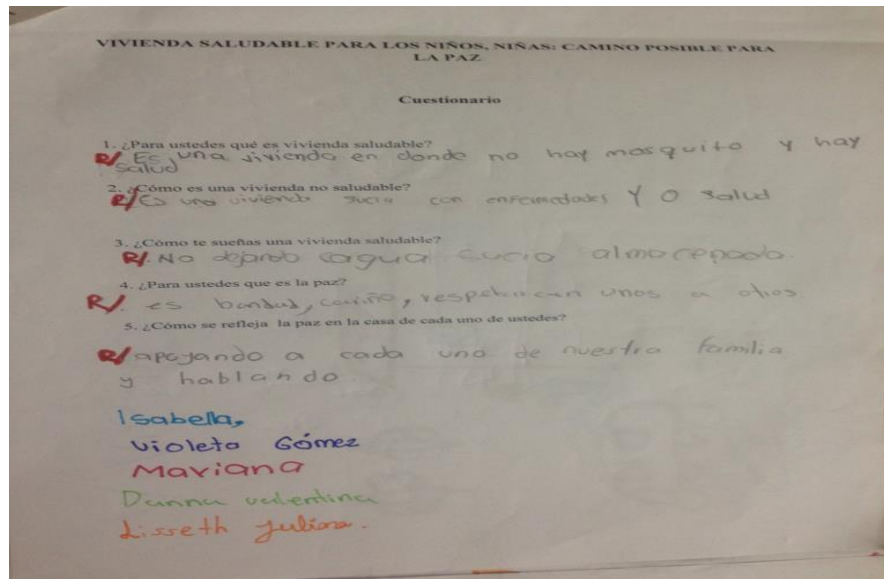 VIVIENDA SALUDABLE PARA LOS NIÑOS, NIÑAS: CAMINO POSIBLE PARA
LA PAZ
Cuestionario
1. ¿Para ustedes qué es vivienda saludable?
R/ Es una vivienda en donde no hay mosquito y hay
salud
2. ¿Cómo es una vivienda no saludable?
R/ Es una vivienda sucia con enfermedades Y O salud
3. ¿Cómo te sueñas una vivienda saludable?
R/. No dejando cagua sucio almacenado.
4. ¿Para ustedes que es la paz?
R/. es bondad, cariño, unos a otros
5. ¿Cómo se refleja la paz en la casa de cada uno de ustedes?
R/ apoyando a cada uno de nuestra familia
y hablando.
Isabella,
Violeta Gómez
Mariana
Danna valentina
Lisseth Juliana.